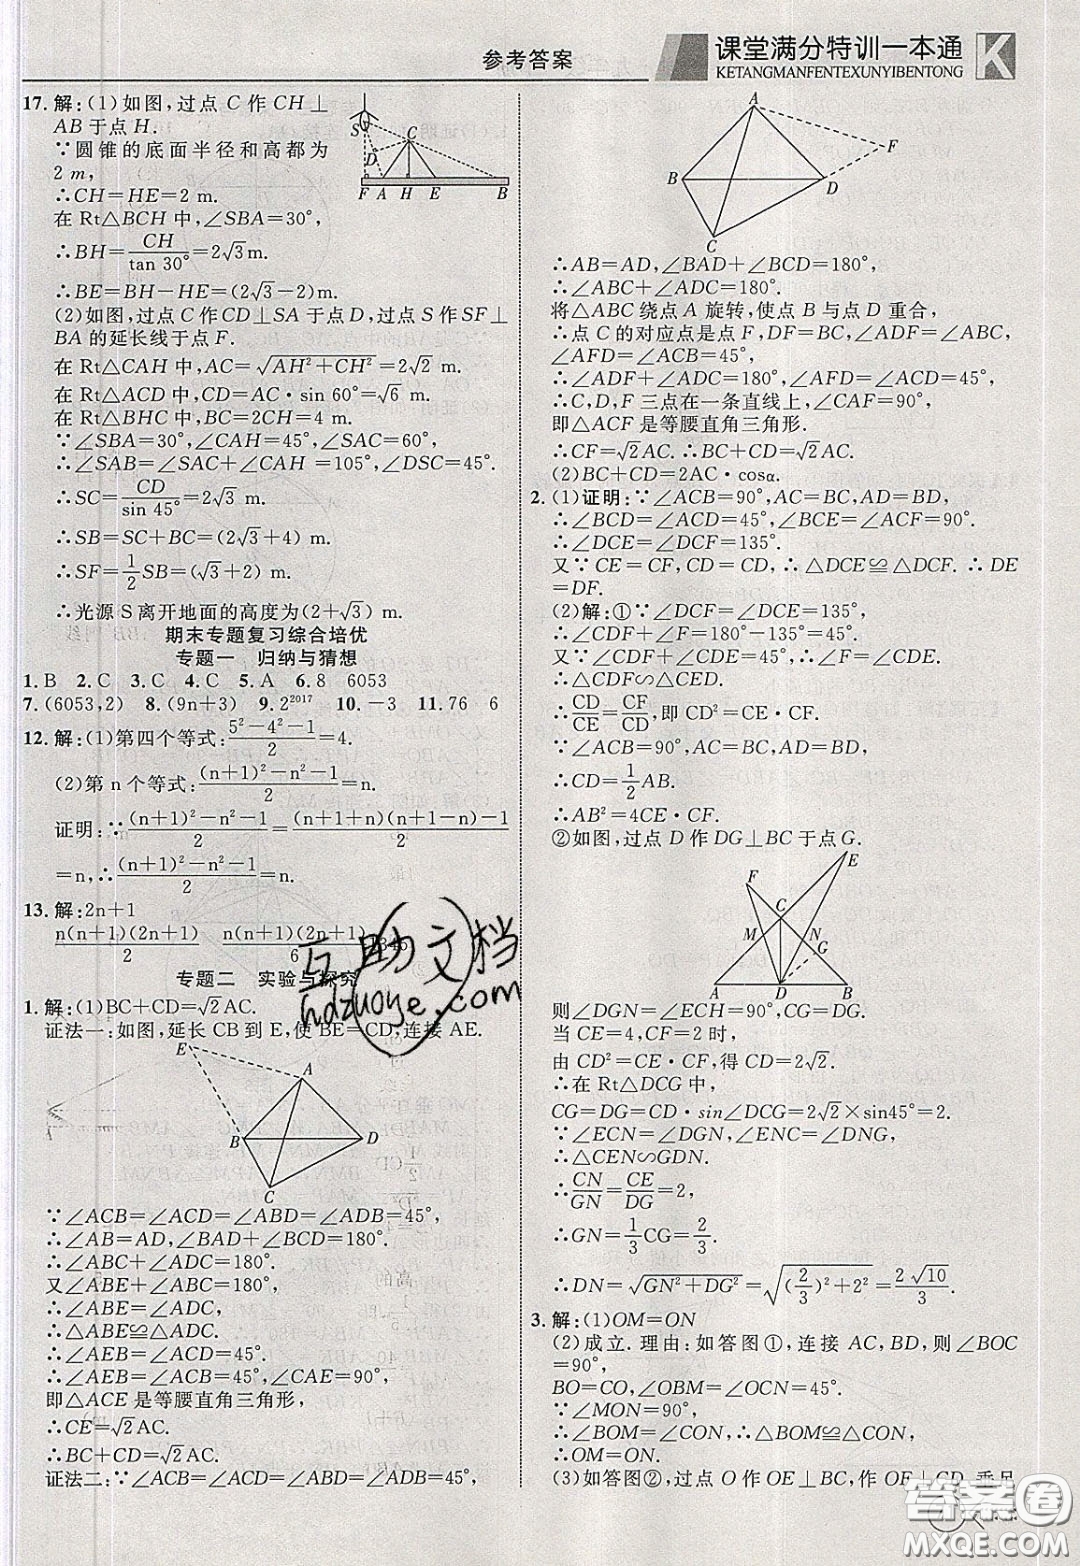 参考答案
课堂满分特训一本通
KETANGMANFENTEXUNYIBENTONG
K
17.解:(1)如图,过点 C 作 CH⊥
AB于点 H.
∵圆锥的底面半径和高都为
2 m,
∴CH=HE=2 m.
在 Rt△BCH 中,∠SBA=30°,
∴BH=CH/tan 30°=2√3 m.
∴BE=BH-HE=(2√3-2) m.
(2)如图,过点 C 作CD⊥SA于点 D,过点 S 作 SF⊥
BA 的延长线于点 F.
在 Rt△CAH 中,AC=√(AH²+CH²)=2√2 m.
在 Rt△ACD 中,CD=AC·sin 60°=√6 m.
在 Rt△BHC 中,BC=2CH=4 m.
∵∠SBA=30°,∠CAH=45°,∠SAC=60°,
∴∠SAB=∠SAC+∠CAH=105°,∠DSC=45°.
∴SC=CD/sin 45°=2√3 m.
∴SB=SC+BC=(2√3+4) m.
∴SF=1/2 SB=(√3+2) m.
∴光源 S 离开地面的高度为(2+√3) m.
期末专题复习综合培优
专题一 归纳与猜想
1.B 2.C 3.C 4.C 5.A 6.8 6053
7.(6053,2) 8.(9n+3) 9.2²⁰¹⁷ 10.-3 11.76 6
12.解:(1)第四个等式:(5²-4²-1)/2=4.
(2)第 n 个等式:((n+1)²-n²-1)/2=n.
证明:∵((n+1)²-n²-1)/2=((n+1+n)(n+1-n)-1)/2
=n,∴((n+1)²-n²-1)/2=n.
13.解:2n+1
n(n+1)(2n+1)/6 n(n+1)(2n+1)/6 1345
专题二 实验与探究
1.解:(1)BC+CD=√2AC.
证法一:如图,延长 CB 到 E,使 BE=CD,连接 AE.
∵∠ACB=∠ACD=∠ABD=∠ADB=45°,
∴∠AB=AD,∠BAD+∠BCD=180°.
∴∠ABC+∠ADC=180°.
又∠ABE+∠ABC=180°,
∴∠ABE=∠ADC.
∴△ABE≌△ADC.
∴∠AEB=∠ACD=45°.
∴∠AEB=∠ACE,∠CAE=90°.
即△ACE 是等腰直角三角形,
∴CE=√2AC.
∴BC+CD=√2AC.
证法二:∵∠ACB=∠ACD=∠ABD=∠ADB=45°,
∴AB=AD,∠BAD+∠BCD=180°,
∴∠ABC+∠ADC=180°.
将△ABC 绕点 A 旋转,使点 B 与点 D 重合,
∴点 C 的对应点是点 F,DF=BC,∠ADF=∠ABC,
∠AFD=∠ACB=45°,
∴∠ADF+∠ADC=180°,∠AFD=∠ACD=45°,
∴C,D,F 三点在一条直线上,∠CAF=90°,
即△ACF 是等腰直角三角形.
∴CF=√2AC. ∴BC+CD=√2AC.
(2)BC+CD=2AC·cosα.
2.(1)证明:∵∠ACB=90°,AC=BC,AD=BD,
∴∠BCD=∠ACD=45°,∠BCE=∠ACF=90°.
∴∠DCE=∠DCF=135°.
又∵CE=CF,CD=CD,∴△DCE≌△DCF.∴DE
=DF.
(2)解:①∵∠DCF=∠DCE=135°,
∴∠CDF+∠F=180°-135°=45°.
又∵∠CDF+∠CDE=45°,∴∠F=∠CDE.
∴△CDF∽△CED.
∴CD/CE=CF/CD,即 CD²=CE·CF.
∵∠ACB=90°,AC=BC,AD=BD,
∴CD=1/2 AB.
∴AB²=4CE·CF.
②如图,过点 D 作 DG⊥BC 于点 G.
则∠DGN=∠ECH=90°,CG=DG.
当 CE=4,CF=2 时,
由 CD²=CE·CF,得 CD=2√2.
∴在 Rt△DCG 中,
CG=DG=CD·sin∠DCG=2√2×sin45°=2.
∵∠ECN=∠DGN,∠ENC=∠DNG,
∴△CEN∽GDN.
∴CN/GN=CE/DG=2,
∴GN=1/3 CG=2/3.
∴DN=√(GN²+DG²)=√((2/3)²+2²)=2√10/3.
3.解:(1)OM=ON
(2)成立.理由:如答图①,连接 AC,BD,则∠BOC
=90°,
BO=CO,∠OBM=∠OCN=45°.
∵∠MON=90°,
∴∠BOM=∠CON,∴△BOM≌△CON,
∴OM=ON.
(3)如答图②,过点 O 作 OE⊥BC,作 OF⊥CD,垂足
互助文档
hdzuoye.com
答案圈
MXQE.COM